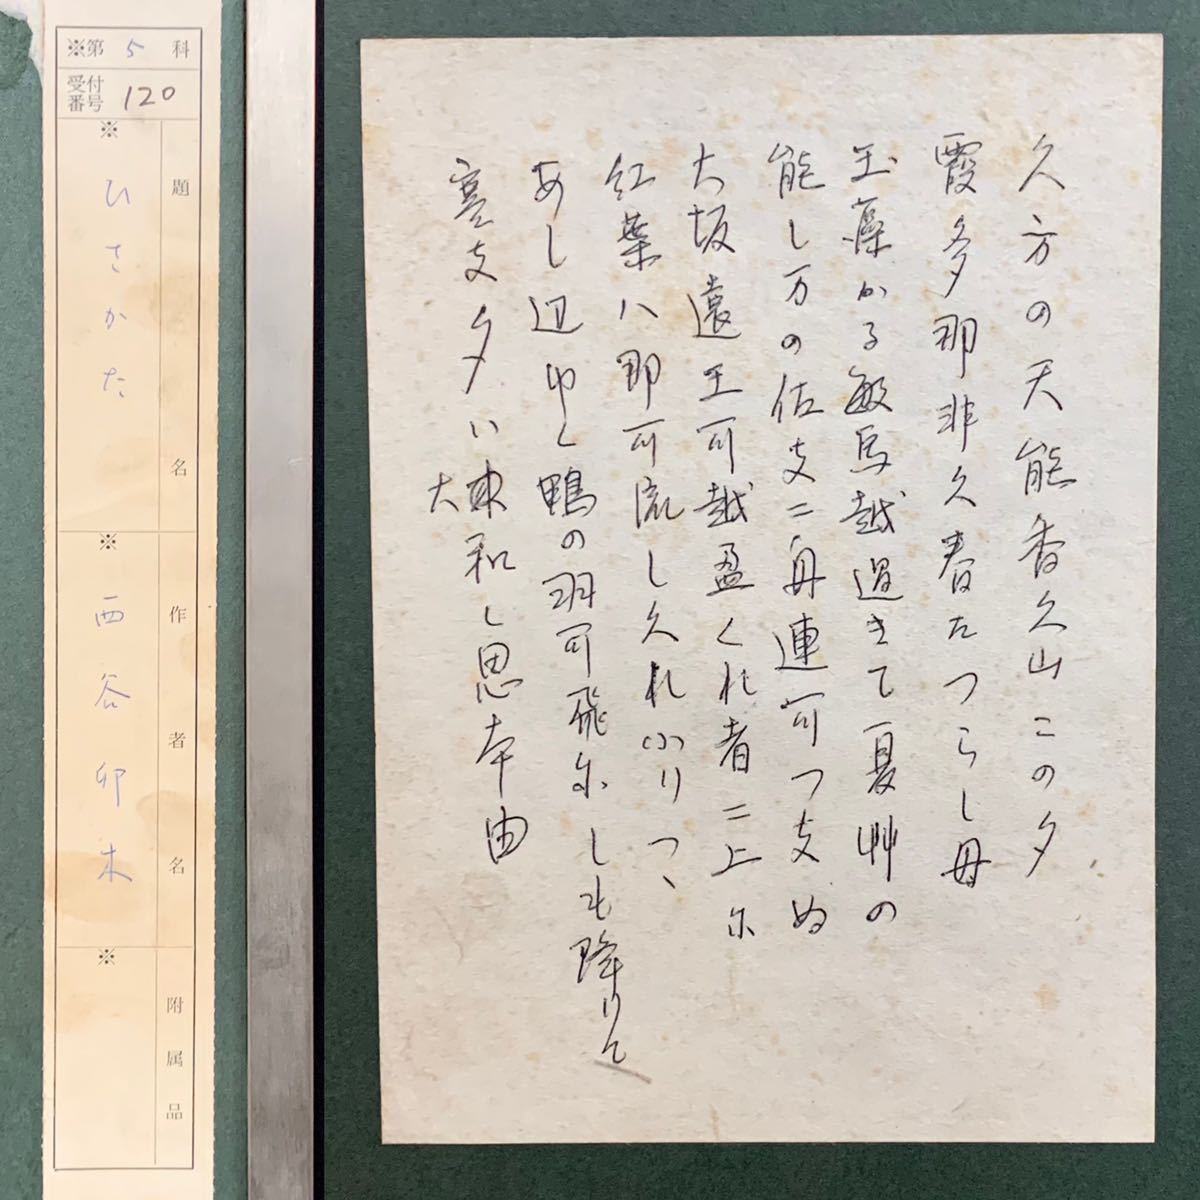 久方の天能香久山この夕
霞多那非久春たつらし母
玉藻かる敏馬越過きて夏艸の
能し万の佐支二舟連可つ支ぬ
大坂遠王可越盈くれ者二上尓
紅葉ハ那可流し久れふりつゝ
あし辺ゆく鴨の羽可飛尓しも降りて
寒支夕い
大和し思本由
※第5科
受付番号 120
※
題名
ひさかた
※
作者名
西谷卯木
※
附属品